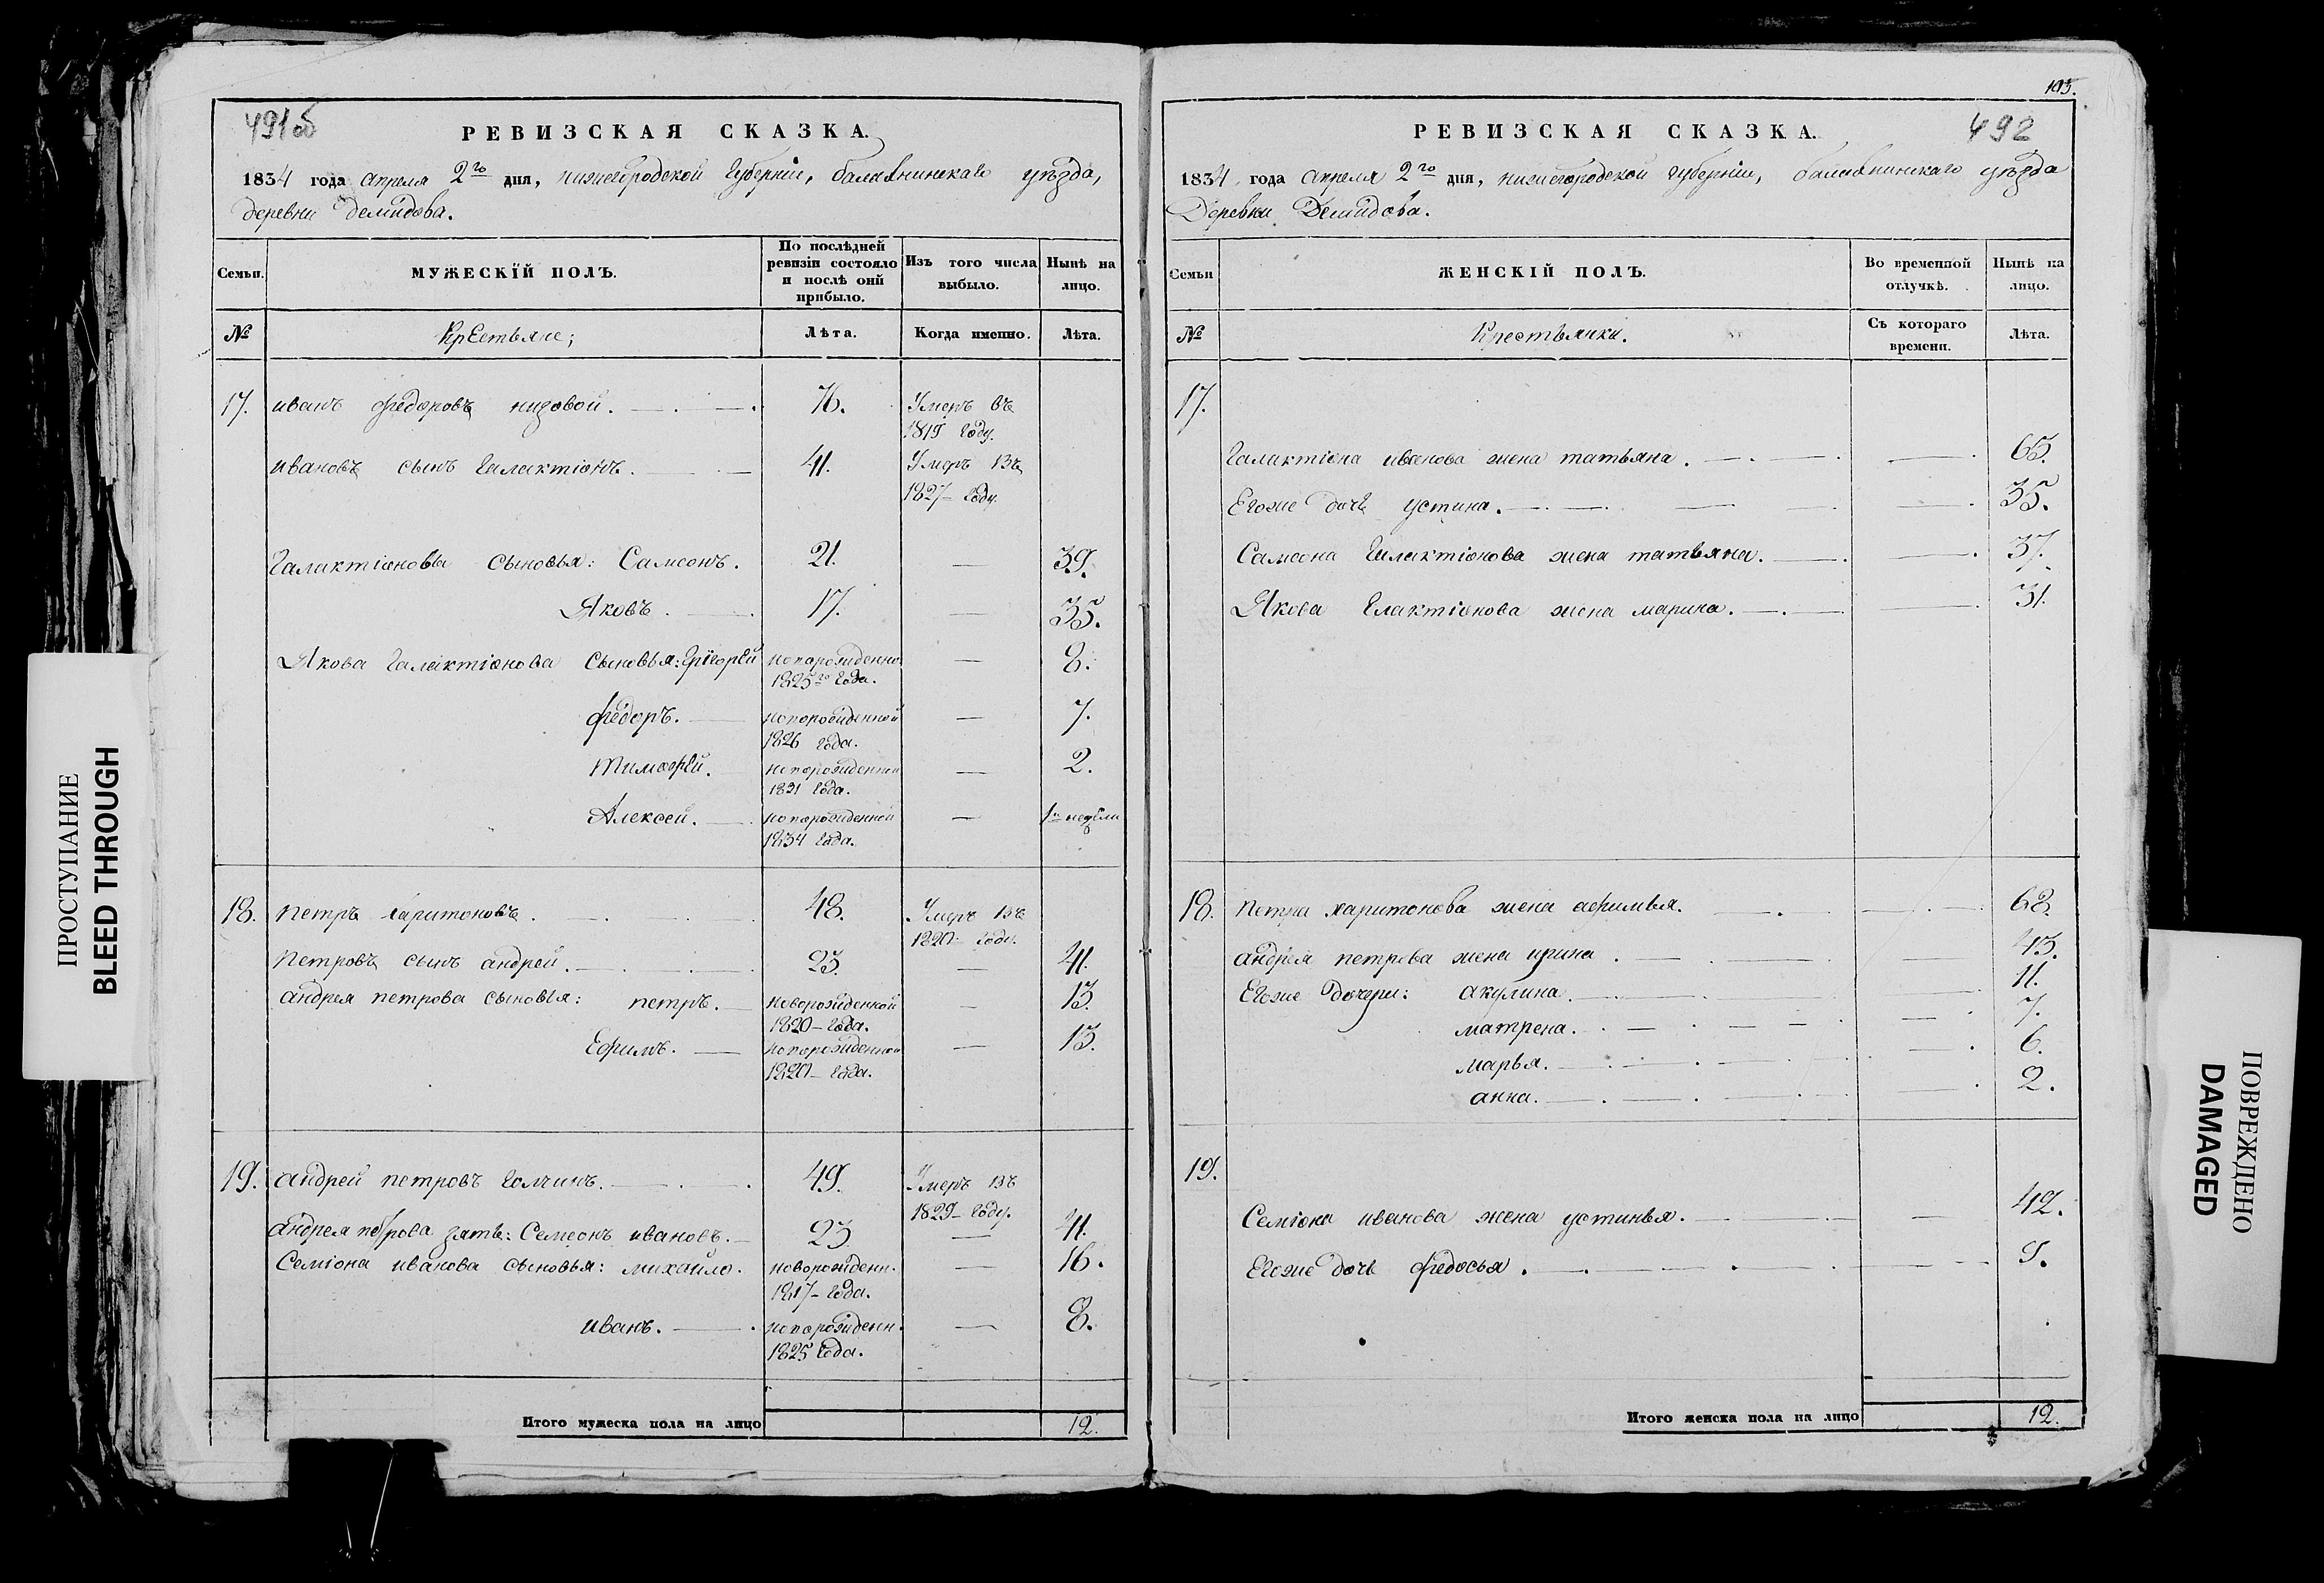 491 об
РЕВИЗСКАЯ СКАЗКА.
1834 года апреля 2го дня, нижегородской губерніи, балахнинскаго уѣзда,
деревни демидова.
Семьи.
МУЖЕСКІЙ ПОЛЪ.
По послѣдней ревизіи состояло и послѣ оній прибыло.
Изъ того числа выбыло.
Нынѣ на лицо.
№
крестьяне;
Лѣта.
Когда именно.
Лѣта.
17. иванъ федоровъ низовой. 76. Умеръ въ
1819 году.
ивановъ сынъ галактіонъ. 41. Умеръ въ
1827 году
галактіоновы сыновья: Самсонъ. 21. — 39.
Яковъ. 17. — 35.
Якова галактіонова сыновья: григорей новорожденно — 8.
1825го года.
федоръ. новорожденной — 7.
1826 года.
тимофей. новорожденной — 2.
1831 года.
Алексей. новорожденной — 1й недели
1834 года.
18. петръ харитоновъ. 48. Умеръ въ
1820 году.
петровъ сынъ андрей. 23. — 41.
андрея петрова сыновья: петръ. новорожденной — 13.
1820 года.
Ефимъ. новорожденной — 13.
1820 года.
19. андрей петровъ 49. Умеръ въ
1829 году.
андрея петрова зять: Семеонъ ивановъ. 23. — 41.
Семіона иванова сыновья: михайло. новорожденн. — 16.
1817 года.
иванъ. новорожденн. — 8.
1825 года.
Итого мужеска пола на лицо 12.
103.
492
РЕВИЗСКАЯ СКАЗКА.
1834 года апреля 2го дня, нижегородской губерніи, балахнинскаго уѣзда
Деревни Демидова.
Семьи
ЖЕНСКІЙ ПОЛЪ.
Во временной отлучкѣ.
Нынѣ на лицо.
№
Крестьянки.
Съ котораго времени.
Лѣта.
17.
галактіона иванова жена татьяна. — 65.
Егоже дочь устина. — 35.
Самсона галактіонова жена татьяна. — 37.
Якова галактіонова жена марина. — 31.
18. петра харитонова жена афимья. — 68.
андрея петрова жена ирина. — 43.
Егоже дочери: акулина. — 11.
матрена. — 7.
марья. — 6.
анна. — 2.
19.
Семіона иванова жена устинья. — 42.
Егоже дочь федосья. — 9.
Итого женска пола на лицо 12.
ПРОСТУПАНИЕ
BLEED THROUGH
ПОВРЕЖДЕНО
DAMAGED